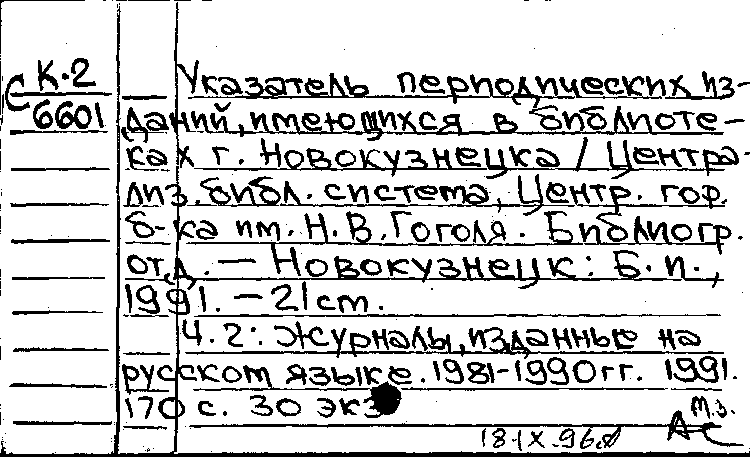 С К.2
6601
Указатель периодических из-
даний, имеющихся в библиоте-
ках г. Новокузнецка / Центра-
лиз. библ. система, Центр. гор.
б-ка им. Н.В.Гоголя. Библиогр.
отд. — Новокузнецк: Б.и.,
1991. – 21 cm.
Ч.2: Журналы, изданные на
русском языке. 1981-1990 гг. 1991.
170 с. 30 экз
м.з.
18.IX.96